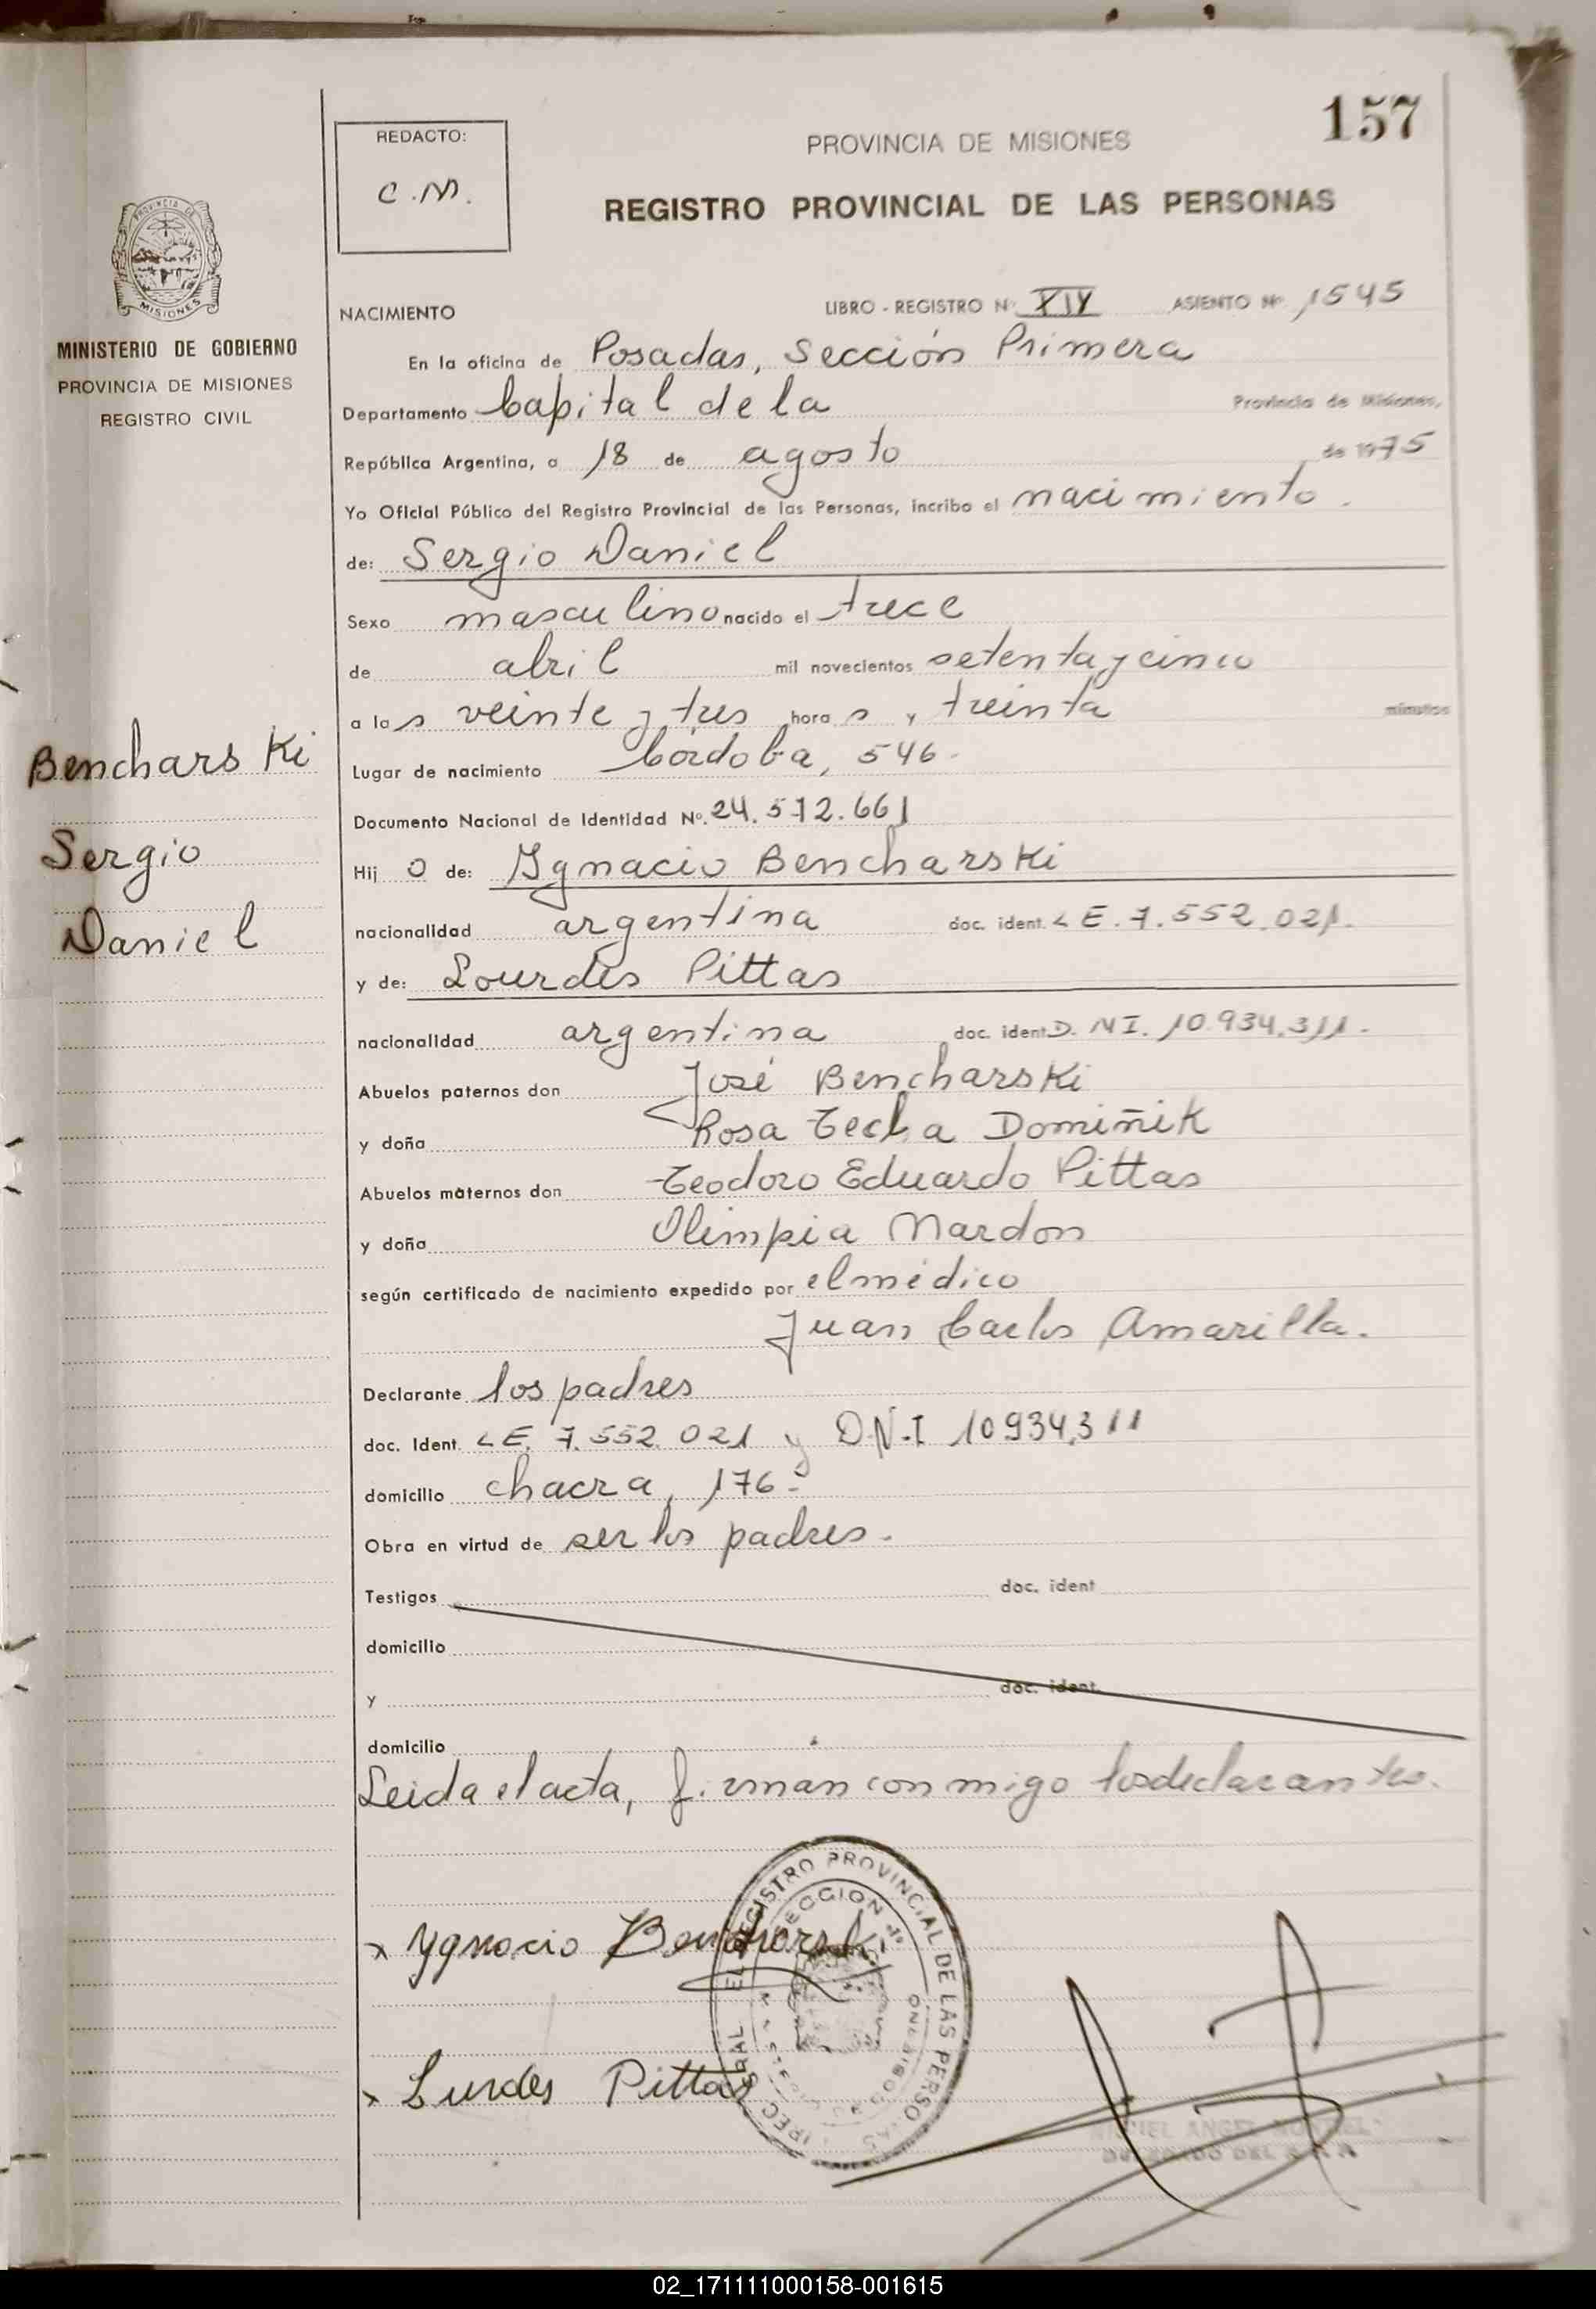 157
REDACTO:
C.M.
PROVINCIA DE MISIONES
REGISTRO PROVINCIAL DE LAS PERSONAS
PROVINCIA DE
MISIONES
MINISTERIO DE GOBIERNO
PROVINCIA DE MISIONES
REGISTRO CIVIL
NACIMIENTO LIBRO - REGISTRO Nº XIV ASIENTO Nº 1545
En la oficina de Posadas, Sección Primera
Departamento Capital de la Provincia de Misiones,
República Argentina, a 18 de agosto de 1975
Yo Oficial Público del Registro Provincial de las Personas, incribo el nacimiento.
de: Sergio Daniel
Sexo masculino nacido el trece
de abril mil novecientos setenta y cinco
a las veinte y tres horas y treinta minutos
Lugar de nacimiento Córdoba, 546-
Documento Nacional de Identidad Nº. 24.572.661
Hijo de: Ygnacio Bencharski
nacionalidad argentina doc. ident. LE. 7.552.021.
y de: Lourdes Pittas
nacionalidad argentina doc. ident. D.NI. 10.934.311.
Abuelos paternos don José Bencharski
y doña Rosa Tecla Domiñik
Abuelos maternos don Teodoro Eduardo Pittas
y doña Olimpia Mardon
según certificado de nacimiento expedido por el médico
Juan Carlos Amarilla.
Declarante los padres
doc. Ident. LE. 7.552.021 y D.N.I 10934311
domicilio chacra, 176-
Obra en virtud de ser los padres.
Testigos doc. ident
domicilio
y doc. ident.
domicilio
Leida el acta, firman conmigo los declarantes.
Bencharski
Sergio
Daniel
x Ygnacio Bencharski
x Lurdes Pittas
REGISTRO PROVINCIAL DE LAS PERSONAS
SECCION 1º
02_171111000158-001615